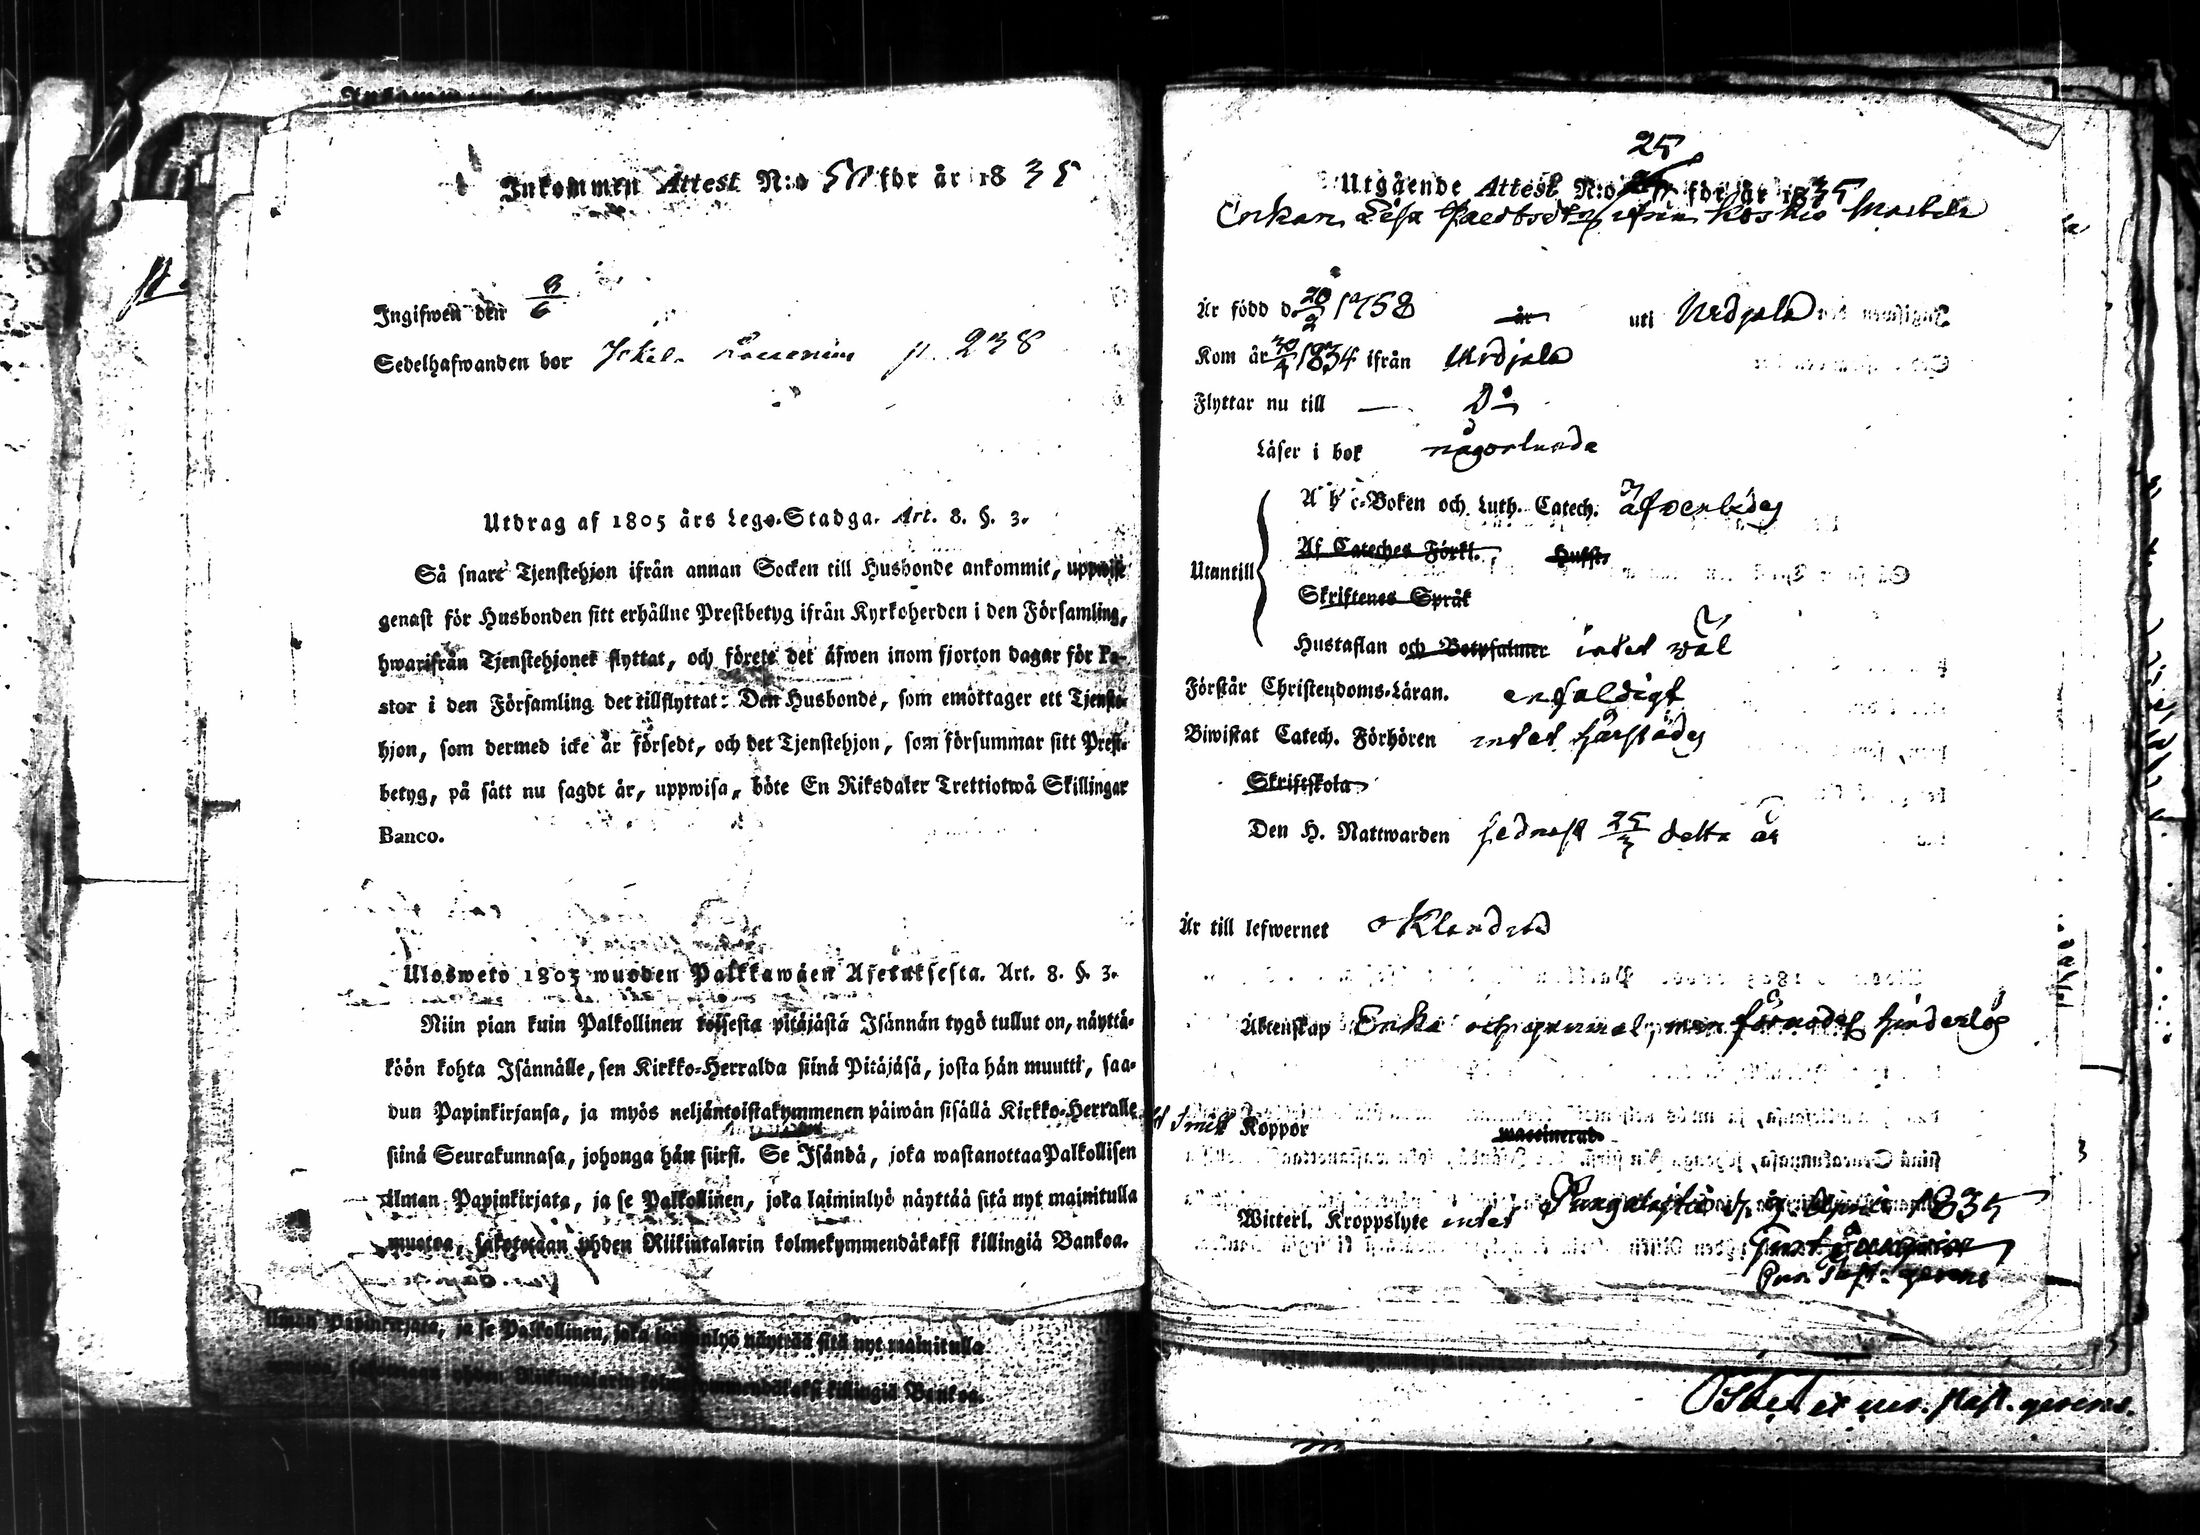 Inkommen Attest N:o 50 för år 1835
Ingifwen den 8/6
Sedelhafwanden bor p. 238
Utdrag af 1805 års Lego-Stadga. Art. 8. §. 3.
Så snart Tjenstehjon ifrån annan Socken till Husbonde ankommit, uppwise
genast för Husbonden sitt erhållne Prestbetyg ifrån Kyrkoherden i den Församling,
hwarifrån Tjenstehjonet flyttat, och förete det äfwen inom fjorton dagar för Pa-
stor i den Församling det tillflyttat: Den Husbonde, som emottager ett Tjenste-
hjon, som dermed icke är försedt, och det Tjenstehjon, som försummar sitt Prest-
betyg, på sätt nu sagdt är, uppwisa, böte En Riksdaler Trettiotwå Skillingar
Banco.
Ulosweto 1805 wuoden Palkkawäen Asetuksesta. Art. 8. §. 3.
Niin pian kuin Palkollinen toisesta pitäjästä Isännän tygö tullut on, näyttä-
köön kohta Isännälle, sen Kirkko-Herralda siinä Pitäjäsä, josta hän muutti, saa-
dun Papinkirjansa, ja myös neljäntoistakymmenen päiwän sisällä Kirkko-Herralle
siinä Seurakunnasa, johonga hän siirsi. Se Isändä, joka wastanottaa Palkollisen
ilman Papinkirjata, ja se Palkollinen, joka laiminlyö näyttää sitä nyt mainitulla
muotoa, sakotetaan yhden Riikintalarin kolmekymmendäkaksi killingiä Bankoa.
ilman Papinkirjata, ja se Palkollinen, joka laiminlyö näyttää sitä nyt mainitulla
killingiä Bankoa.
25
Utgående Attest N:o för år 1835
Enkan Lisa ifrån Koskis
Är född d. 20/2 1758 år uti Urdjala
Kom år 30/4 1834 ifrån Urdjala
Flyttar nu till — Do
Läser i bok någorlunda
Utantill
A b c-Boken och Luth. Catech. äfvenledes
Af Cateches Förkl. Hufst.
Skriftenes Språk
Hustaflan och Botpsalmer intet wäl
Förstår Christendoms-Läran. enfaldigt
Biwistat Catech. Förhören intet härstädes
Skriftskola
Den H. Nattwarden sednast 25/3 detta år
Är till lefwernet oklandrad
Äktenskap Enka och gammal, men förmodl. hinderlös
Koppor waccinerad
Witterl. Kroppslyte intet
Pungalaitio d. 9 April 1835